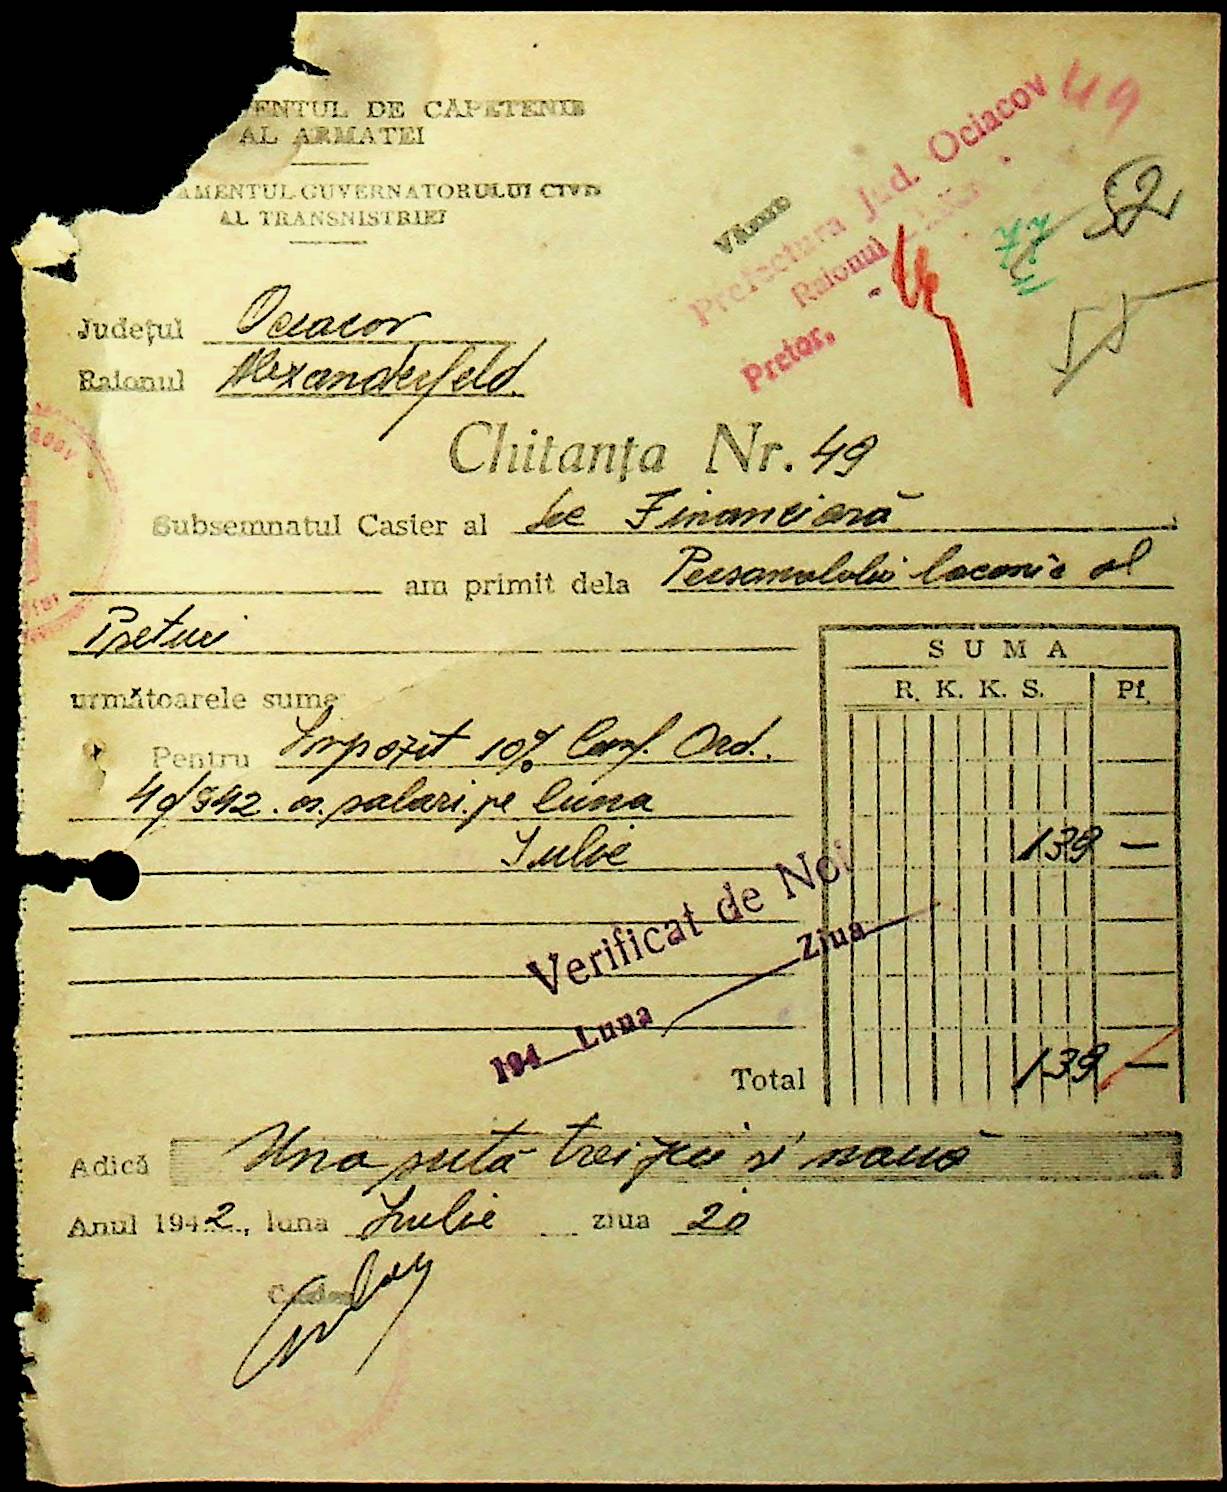 ENTUL DE CAPETENIE
AL ARMATEI
AMENTUL GUVERNATORULUI CIVIL
AL TRANSNISTRIEI
49
52
77
Văzut
Prefectura Jud. Ociacov
Raionul
Pretor,
Județul Ociacov
Raionul Alexanderfeld.
Chitanța Nr. 49
Subsemnatul Casier al Sec Financiară
am primit dela Personalului localnic al
Preturi
SUMA
R. K. K. S. Pf.
următoarele sume
Pentru Impozit 10% Conf. Ord.
salari pe luna
Iulie 139 —
Verificat de Noi
194 Luna Ziua
Total 139 —
Adică Una sută treizeci si nouă
Anul 1942, luna Iulie ziua 20